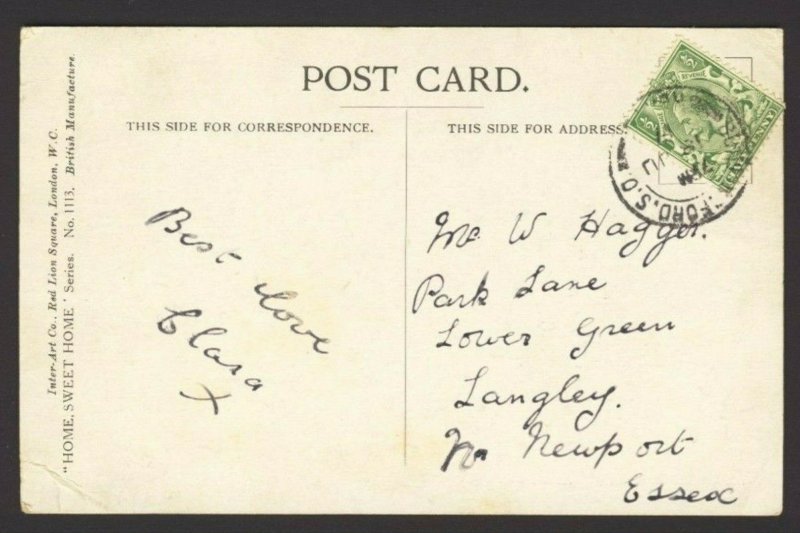 POST CARD.
THIS SIDE FOR CORRESPONDENCE.
THIS SIDE FOR ADDRESS.
Inter-Art Co., Red Lion Square, London, W.C.
"HOME, SWEET HOME" Series. No. 1113. British Manufacture.
Best love
Clara
X
Mr W Hagger.
Park Lane
Lower Green
Langley.
Nr Newport
Essex
REVENUE
FORD.S.O
JU
PM